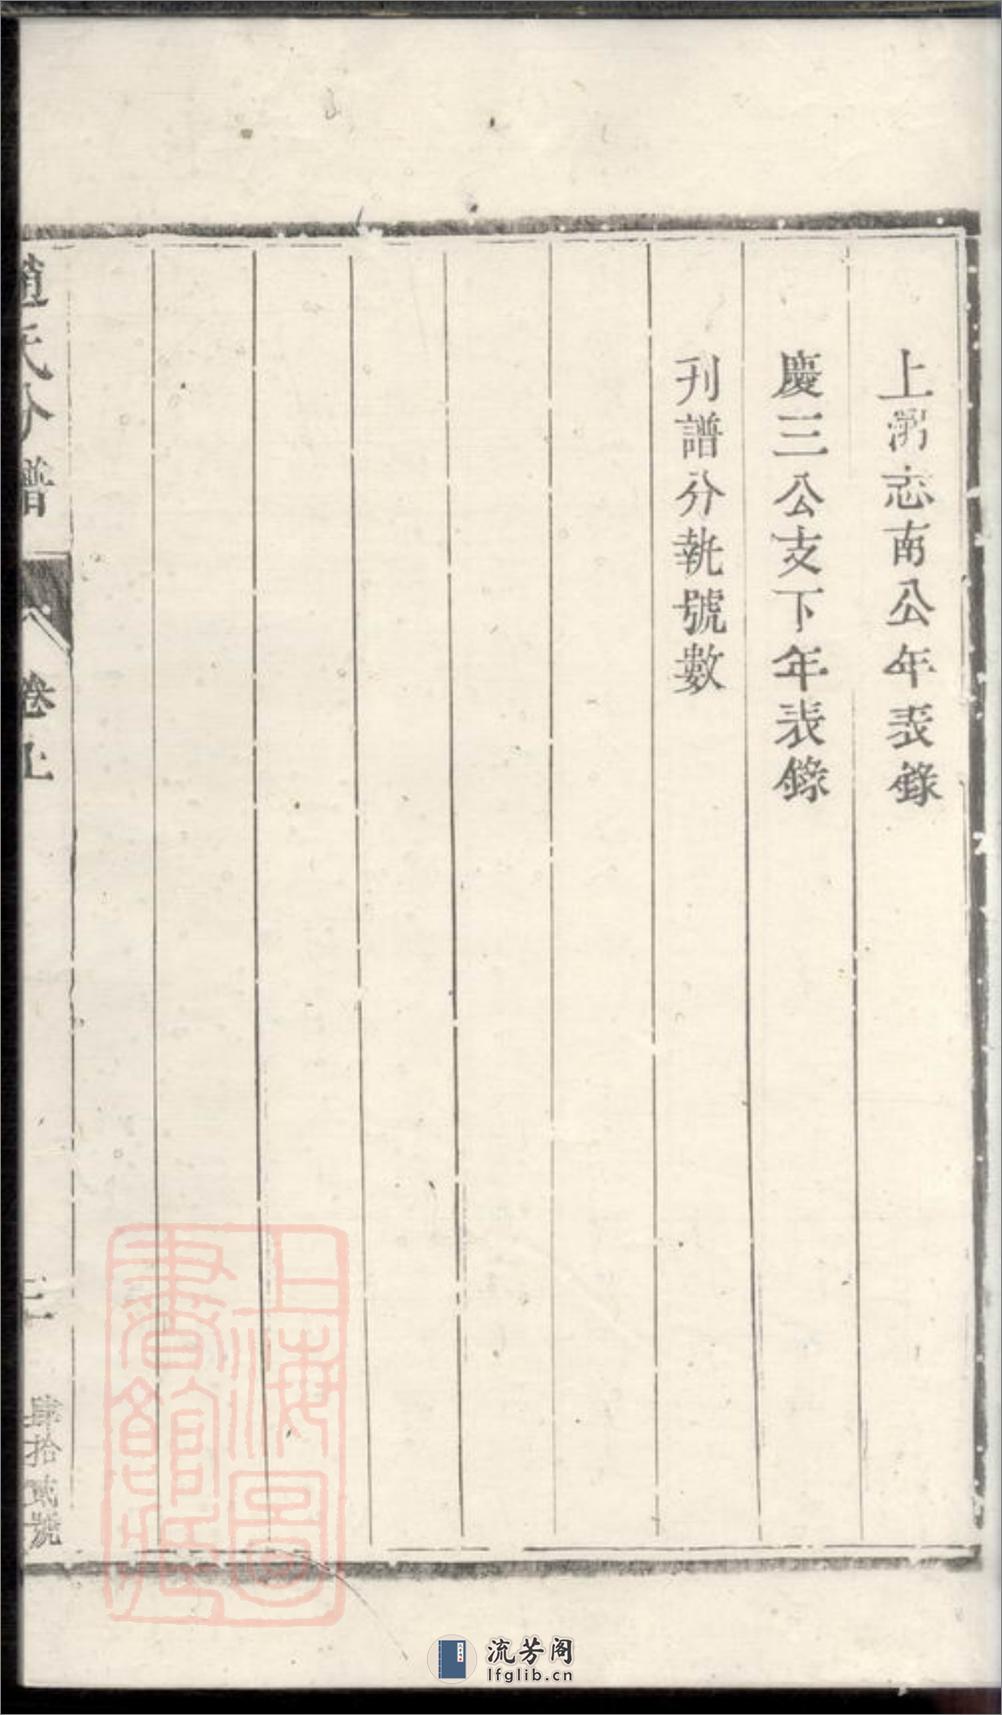 上湾志南公年表錄
慶三公支下年表錄
刊譜分執號數
趙氏分譜
卷上
三
肆拾貳號
上海圖書館藏
流芳阁
lfglib.cn